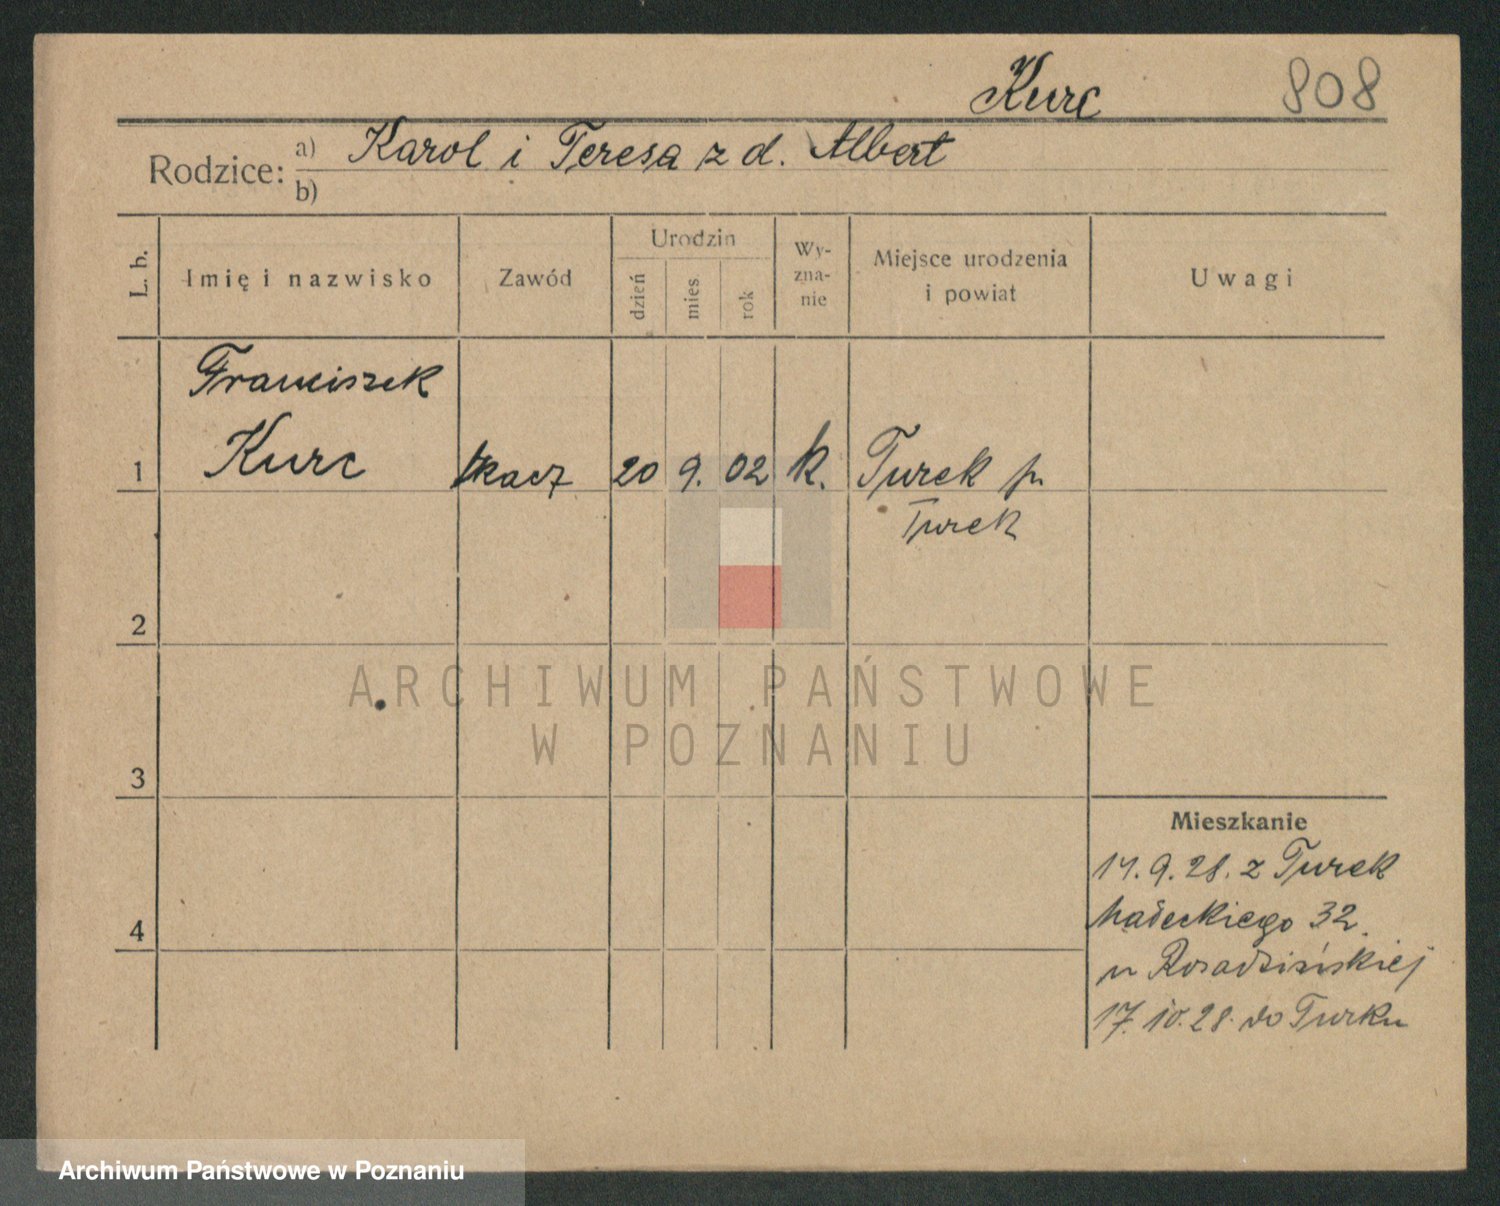 Kurc 808
Rodzice: a) Karol i Teresa z d. Albert
b)
L. b. Imię i nazwisko Zawód Urodzin dzień mies. rok Wy-zna-nie Miejsce urodzenia i powiat Uwagi
Franciszek
1 Kurc tkacz 20 9. 02 k. Turek p.
Turek
2
ARCHIWUM PAŃSTWOWE
W POZNANIU
3
Mieszkanie
14. 9. 28. z Turek
4 Małeckiego 32.
u
17. 10. 28. do Turku
Archiwum Państwowe w Poznaniu